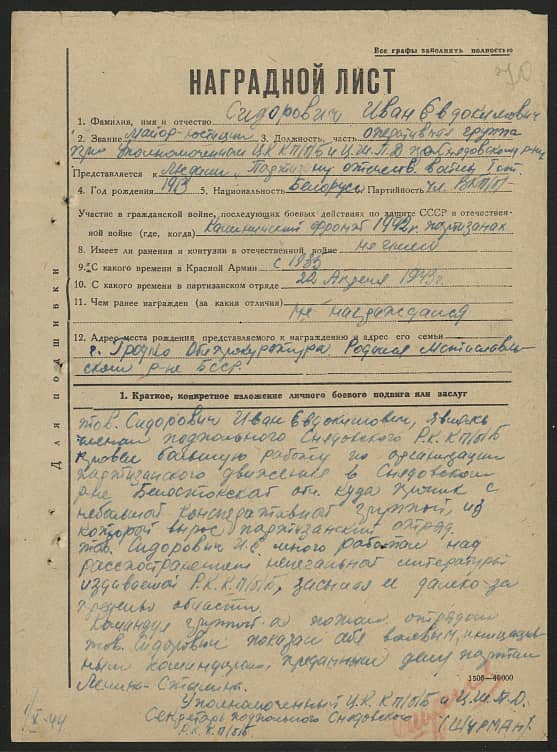 Все графы заполнять полностью
70
НАГРАДНОЙ ЛИСТ
1. Фамилия, имя и отчество Сидорович Иван Евдокимович
2. Звание майор-юстиции 3. Должность, часть оперативная группа
при Уполномоченном Ц.К.КП/б/Б и Ц.Ш.П.Д по Снядовскому р-ну
Представляется к медали "Партизану отечеств. войны" I ст.
4. Год рождения 1913 5. Национальность Белорусс Партийность чл. ВКП/б/
Участие в гражданской войне, последующих боевых действиях по защите СССР и отечествен-
ной войне (где, когда) Калининский фронт 1942 г. партизанах
8. Имеет ли ранения и контузии в отечественной войне не имеет
9. С какого времени в Красной Армии с 1935
10. С какого времени в партизанском отряде 22 Апреля 1943 г.
11. Чем ранее награжден (за какия отличия)
не награждался
12. Адрес места рождения представляемого к награждению и адрес его семьи
г. Гродно Облпрокуратура Родился Мстиславль-
ском р-не БССР.
Для подшивки
1. Краткое, конкретное изложение личного боевого подвига или заслуг
тов. Сидорович Иван Евдокимович, являясь
членом подпольного Снядовского Р.К.КП/б/Б
провел большую работу по организации
партизанского движения в Снядовском
р-не Белостокской обл. куда проник с
небольшой группой, из
которой вырос партизанский отряд.
тов. Сидорович И.Е. много работал над
распространением нелегальной литературы
издаваемой Р.К.КП/б/Б, засылая ее далеко за
пределы области.
Командуя группой а потом отрядом
тов. Сидорович показал себя волевым, инициатив-
ным командиром, преданным делу партии
Ленина-Сталина.
1500—40000
Уполномоченный Ц.К.КП/б/Б и Ц.Ш.П.Д.
Секретарь подпольного Снядовского
Р.К.КП/б/Б
/ШУРМАН/.
44